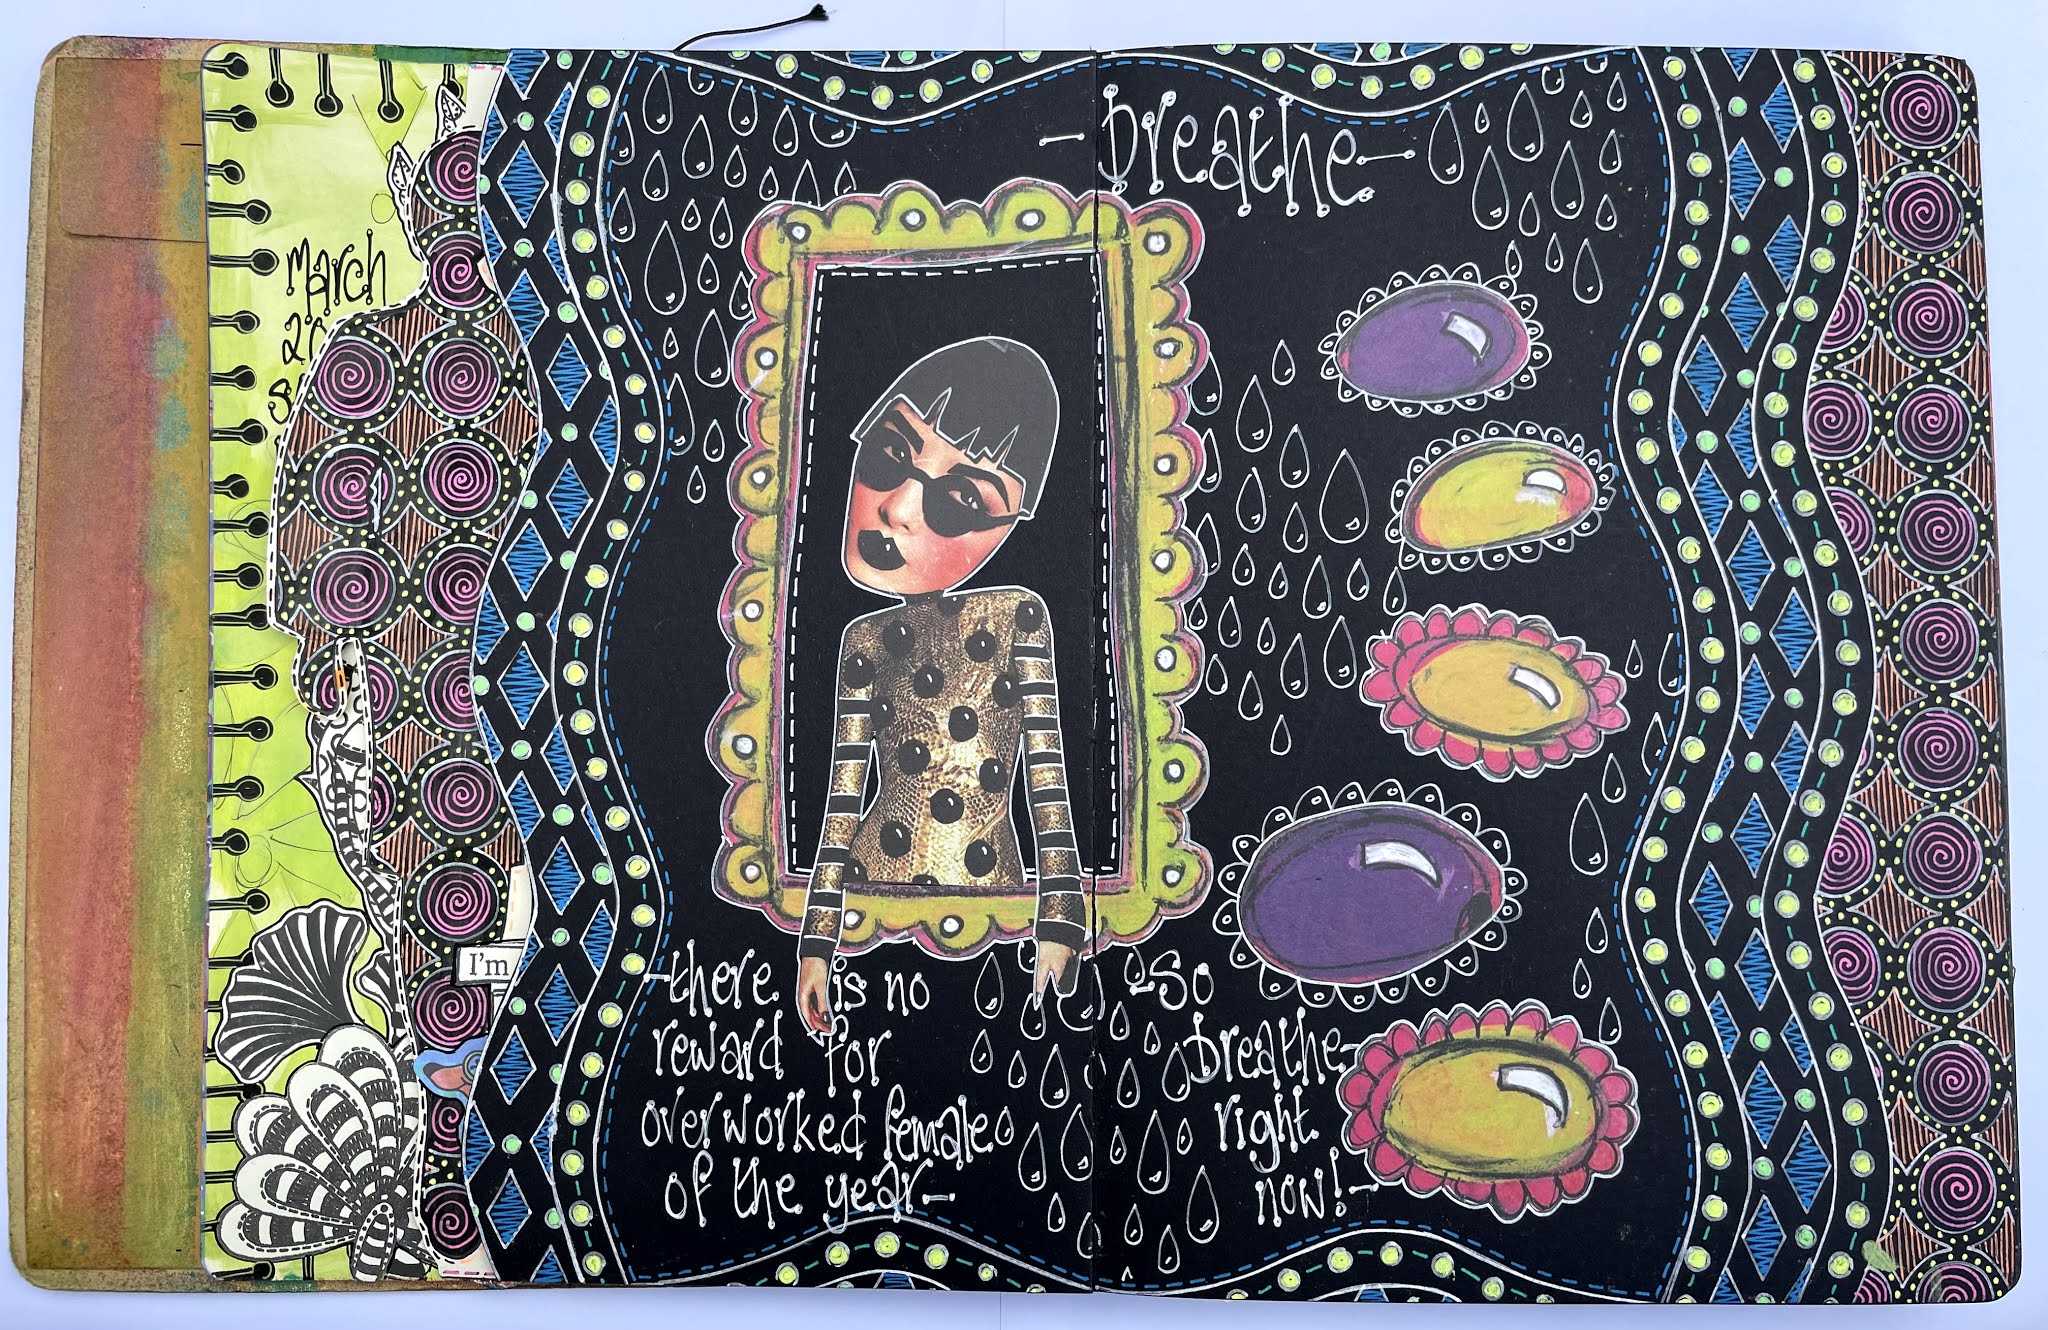 -breathe-
March
I'm
-there is no
reward for
overworked female
of the year-
-So
breathe-
right
now!-